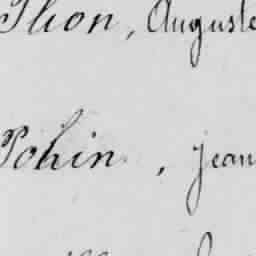 Thon, Auguste
Pohin, Jean